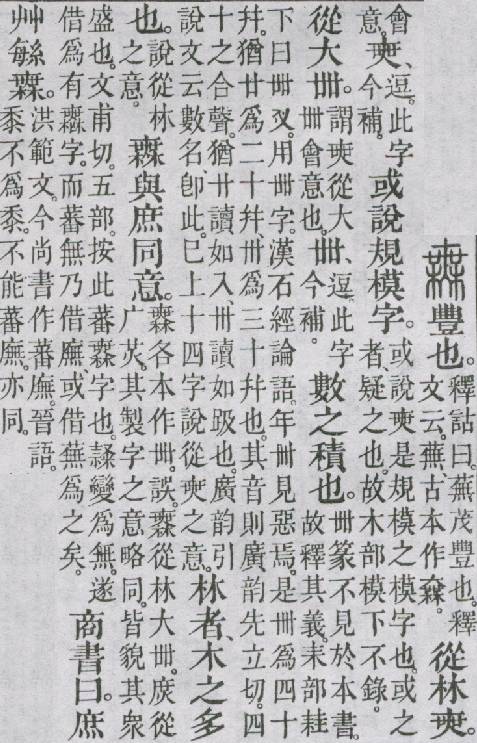 𣞤豐也。釋詁曰。蕪茂豐也。釋文云。蕪、古本作𣞤。從林𡘲。
會意。𡘲、逗。此字今補。或說規模字。或說𡘲是規模之模字也。或之者、疑之也。故木部模下不錄。
從大卌。謂𡘲從大卌會意也。卌、逗。此字今補。數之積也。卌篆不見於本書。故釋其義。耒部䎱
下曰卌叉。用卌字。漢石經論語。年卌見惡焉。是卌爲四十幷。猶廿爲二十幷、卅爲三十幷也。其音則廣韵先立切。四
十之合聲。猶廿讀如入、卅讀如趿也。廣韵引說文云數名、卽此。已上十四字說從𡘲之意。林者、木之多
也。說從林之意。𣞤與庶同意。𣞤各本作卌。誤。𣞤從林大卌。庶從广炗。其製字之意略同。皆貌其衆
盛也。文甫切。五部。按此蕃𣞤字也。隸變爲無。遂借爲有𣞣字。而蕃無乃借廡、或借蕪爲之矣。商書曰。庶
艸緐𣞤。洪範文。今尚書作蕃廡。晉語。黍不爲黍。不能蕃廡。亦同。